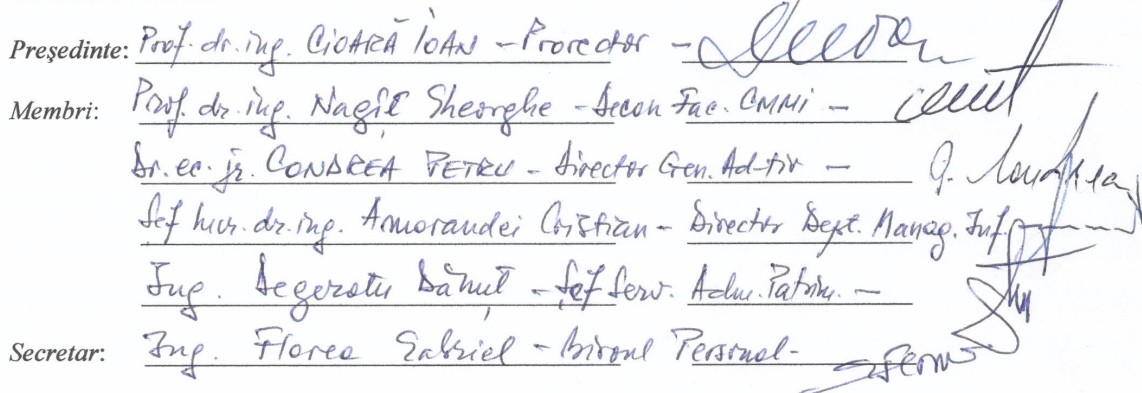 Președinte: Prof. dr. ing. CIOARĂ IOAN – Prorector –
Membri: Prof. dr. ing. Nagîț Gheorghe – Decan Fac. CMMI –
Dr. ec. jr. CONDREA PETRU – Director Gen. Ad-tiv –
Șef lucr. dr. ing. Amorandei Cristian – Director Dept. Manag. Inf.
Ing. Degeratu Dănuț – Șef Serv. Adm. Patrim. –
Secretar: Ing. Florea Gabriel – Biroul Personal –